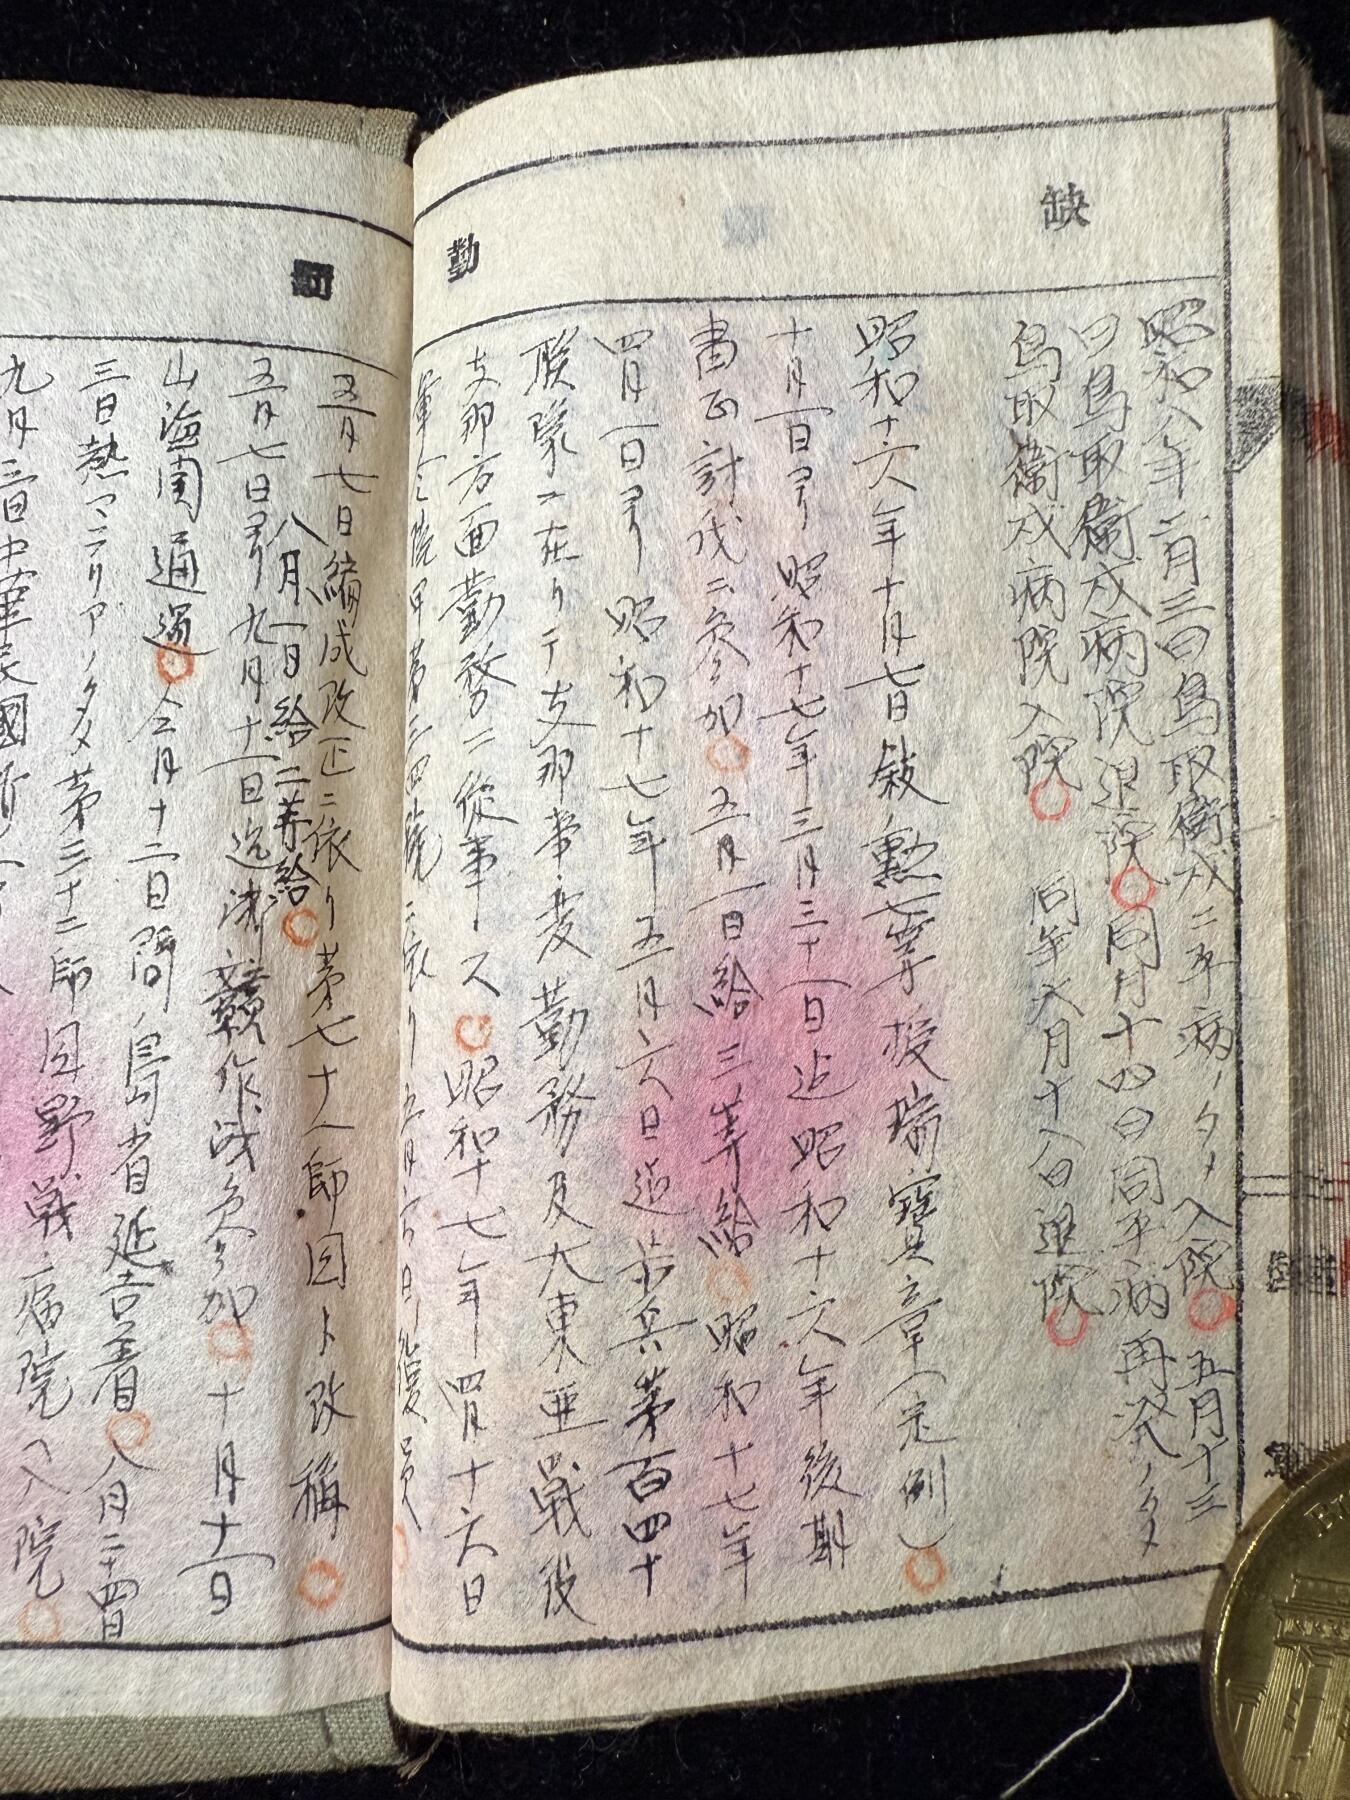 缺
勤
昭和八年二月三日鳥取衛戍ニ平病ノタメ入院 五月十三
日鳥取衛戍病院退院 同月十四日同平病再発ノタメ
鳥取衛戍病院入院 同年六月十八日退院
昭和十六年十月七日敍勲七等授瑞寶章(定例)
十月一日ヨリ昭和十七年三月三十一日迄昭和十六年後期
粛正討伐ニ参加 五月一日給三等給 昭和十七年
四月一日ヨリ昭和十七年五月六日迄歩兵第百四十
聯隊ニ在リテ支那事変勤務及大東亜戦役
支那方面勤務ニ従事ス 昭和十七年四月十六日
軍令陸甲第三四號ニ依リ五月六日復員
五月七日編成改正ニ依リ第七十一師団ト改稱
八月一日給二等給
五月七日ヨリ九月十一日迄浙贛作戦参加 十月十一日
山海関通過 仝月十二日間島省延吉着 八月二十四日
三日熱マラリアノタメ第三十二師団野戦病院ヘ入院
九月三日中華民國